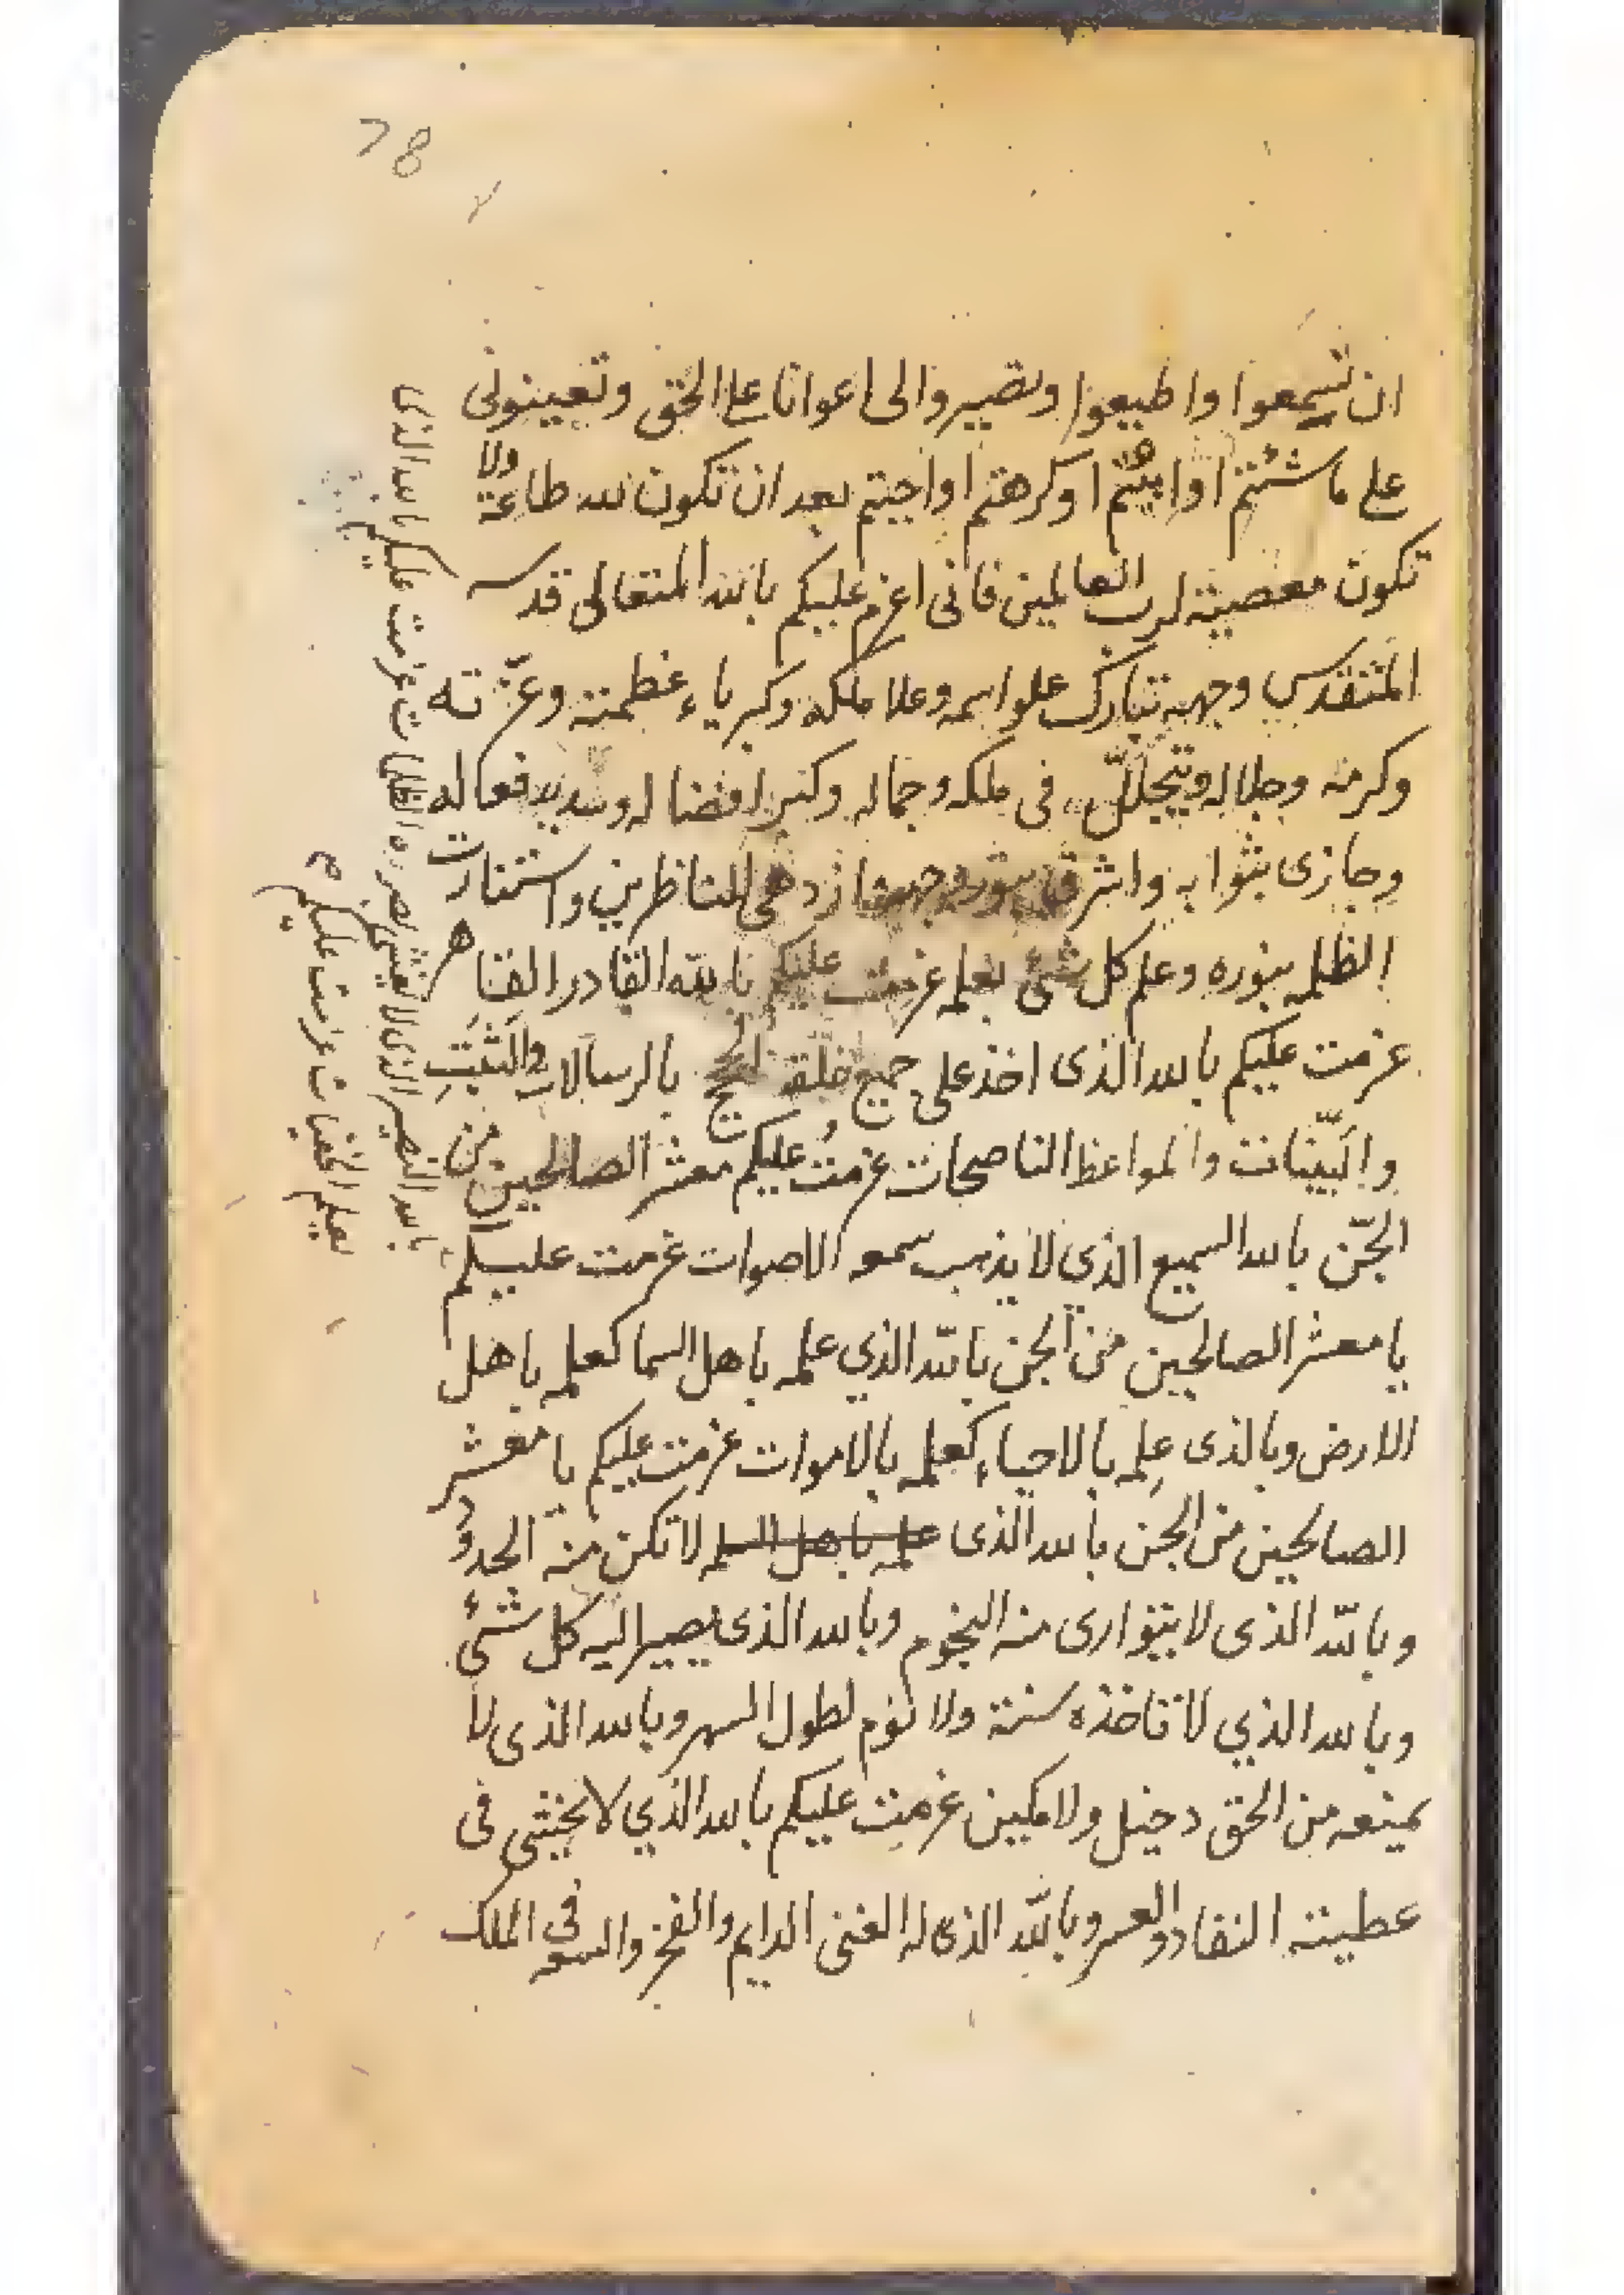 78
ان تسمعوا واطيعوا وتصيروا الى اعوانا على الحق وتعينونى
على ما شئتم او ابيتم او كرهتم او اجبتم بعد ان تكون لله طاعة ولا
تكون معصية لرب العالمين فانى اعزم عليكم بالله المتعالى قدسه
المتقدس وجهه تبارك علو اسمه وعلا ملكه وكبرياء عظمته وعزته
وكرمه وجلاله ويتجلل فى ملكه وجماله وكثير افضاله وشديد فعاله
وجازى بثوابه واشرق بنور وجهه فازدهى للناظرين واستنارت
الظلمه بنوره وعلم كل شئ بعلمه عزمت عليكم بالله القادر القاهر
عزمت عليكم بالله الذى اخذ على جميع خلقه الحجج بالرسالات
والبينات والمواعظ الناصحات عزمت عليكم معشر الصالحين من
الجن بالله السميع الذى لا يذهب سمعه الاصوات عزمت عليكم
يا معشر الصالحين من الجن بالله الذي علمه باهل السما كعلمه باهل
الارض وبالذى علمه بالاحياء كعلمه بالاموات عزمت عليكم يا معشر
الصالحين من الجن بالله الذى علمه باهل السما لا تكن منه الحدود
وبالله الذى لا يتوارى منه النجوم وبالله الذى يصير اليه كل شئ
وبالله الذي لا تاخذه سنة ولا نوم لطول السهر وبالله الذى لا
يمنعه من الحق دخيل ولا مكين عزمت عليكم بالله الذي لا يخشى فى
عطيته النفاد والعسر وبالله الذى له الغنى الدايم والفخر والسعه فى الملك
بالله البصير الذى لا تغشى بصره الظلمات عزمت عليكم بالله الذى
يعلم الخفيات عزمت عليكم